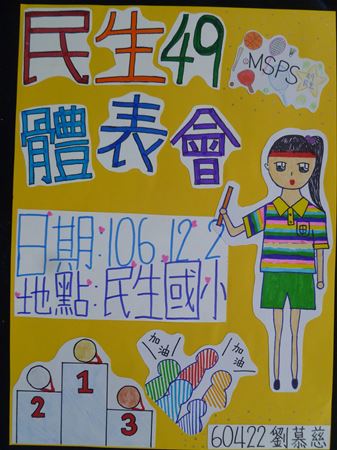 民生49
MSPS
體表會
日期:106.12.2
地點:民生國小
加油
加油
1
2
3
60422 劉慕慈